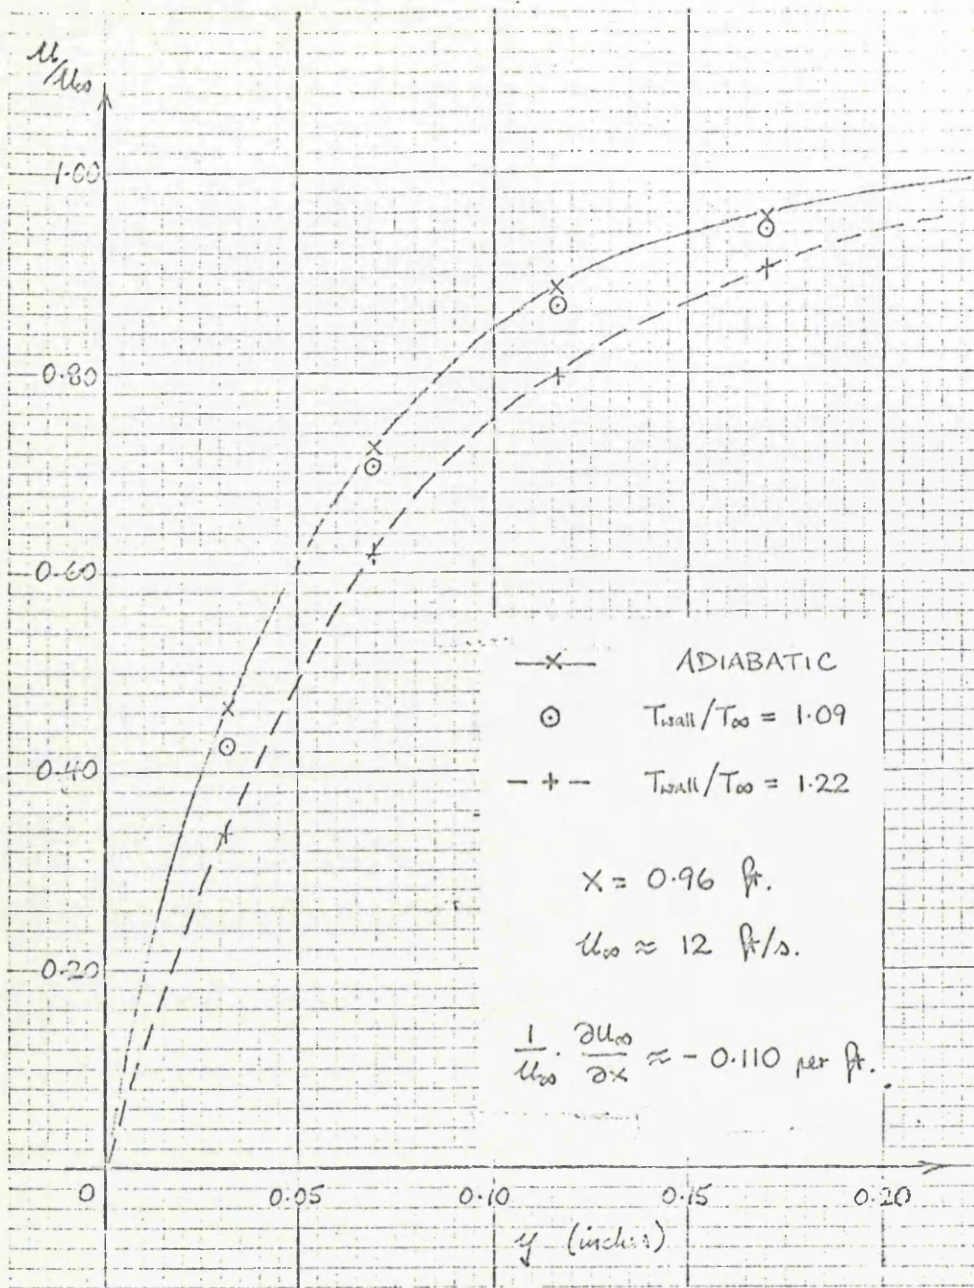 u/u∞
1.00
0.80
0.60
0.40
0.20
0
0.05
0.10
0.15
0.20
y (inches)
—×— ADIABATIC
⊙ Twall/T∞ = 1.09
– + – Twall/T∞ = 1.22
x = 0.96 ft.
u∞ ≈ 12 ft/s.
1/u∞ · ∂u∞/∂x ≈ - 0.110 per ft.